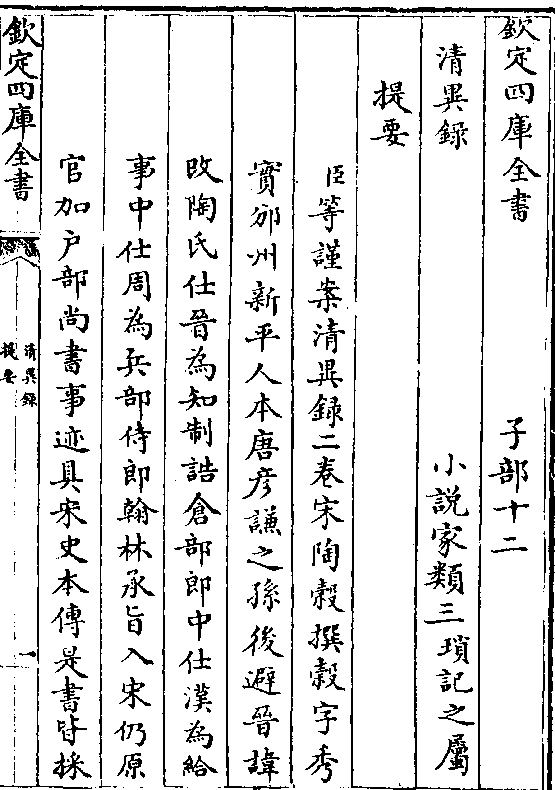 欽定四庫全書　子部十二
清異録　小説家類三瑣記之屬
提要
臣等謹案清異録二卷宋陶穀撰穀字秀
實邠州新平人本唐彦謙之孫後避晉諱
改陶氏仕晉為知制誥倉部郎中仕漢為給
事中仕周為兵部侍郎翰林承旨入宋仍原
官加户部尚書事迹具宋史本傳是書皆採
欽定四庫全書
清異録
提要
一